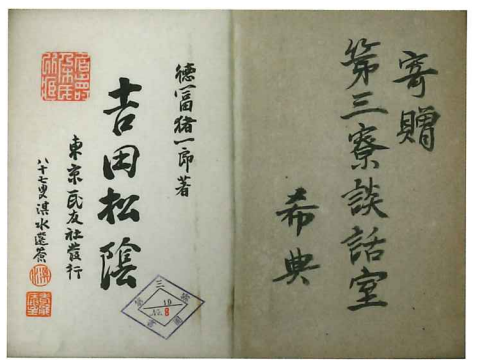 寄贈
第三寮談話室
希典
德富猪一郎著
吉田松陰
東京民友社發行
八十七叟淇水
三
19